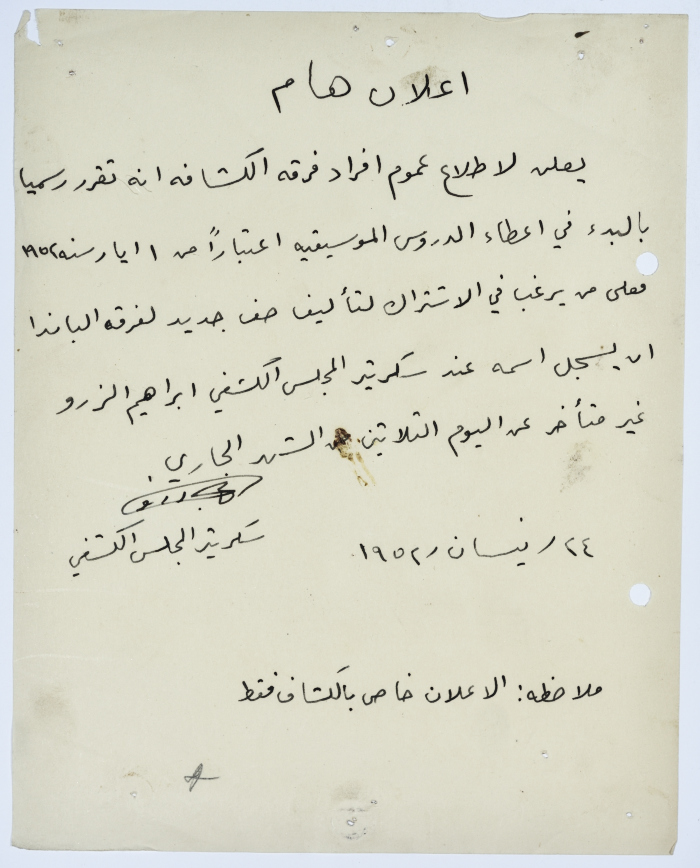 اعلان هام
يعلن لاطلاع عموم افراد فرقه الكشافه انه تقرر رسميا
بالبدء في اعطاء الدروس الموسيقيه اعتباراً من ١ ايار سنه ١٩٥٢
فعلى من يرغب في الاشتراك لتأليف صف جديد لفرقه الباندا
ان يسجل اسمه عند سكرتير المجلس الكشفي ابراهيم الزرو
غير متأخر عن اليوم الثلاثين من الشهر الجاري
سكرتير المجلس الكشفي
٢٤ / نيسان / ١٩٥٢
ملاحظه: الاعلان خاص بالكشاف فقط